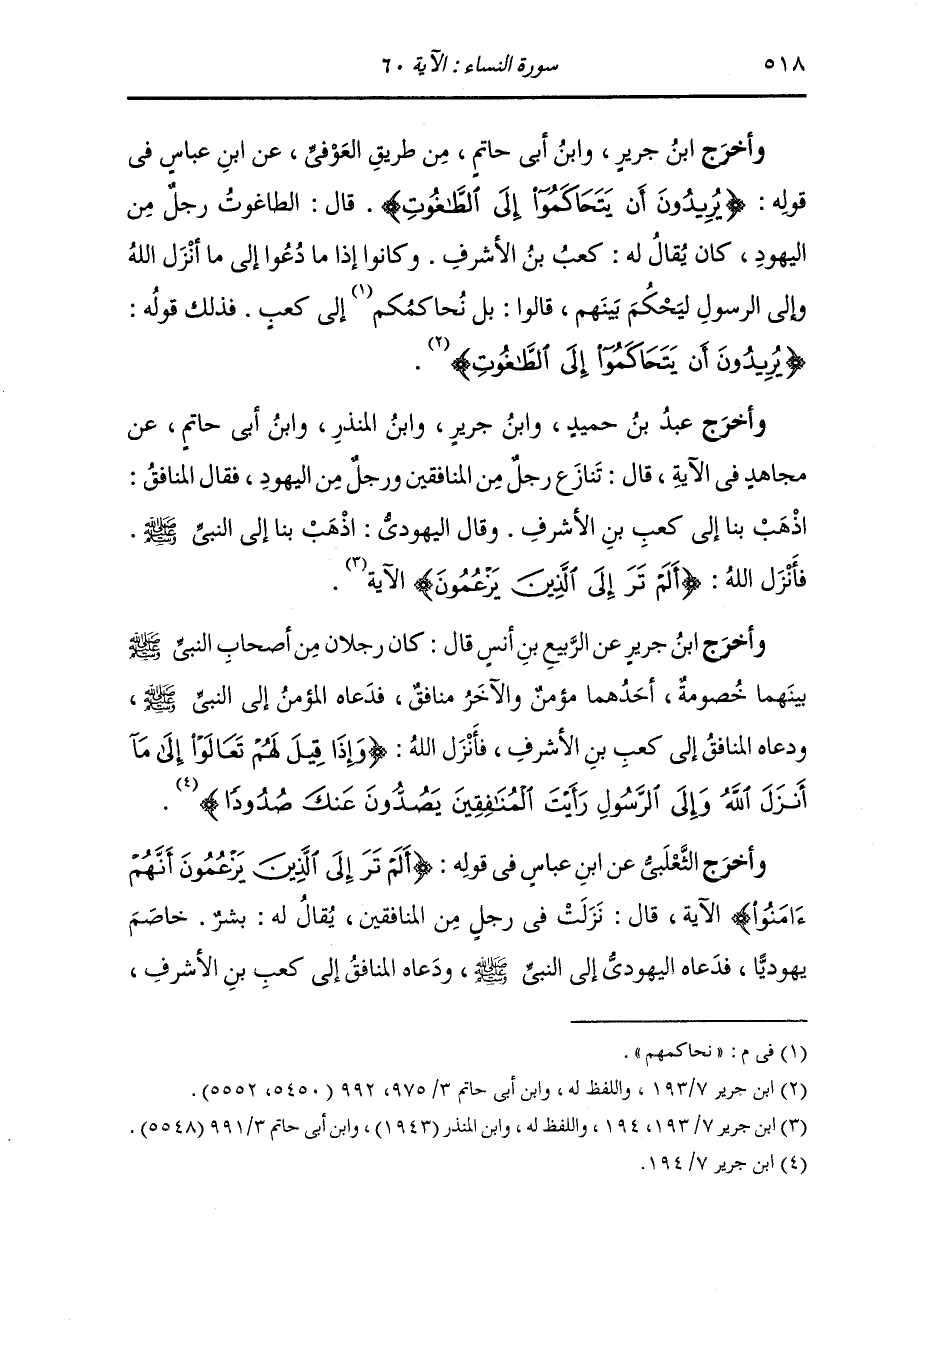 ٥١٨ سورة النساء : الآية ٦٠
وأخرَج ابنُ جريرٍ ، وابنُ أبى حاتمٍ ، مِن طريقِ العَوْفىِّ ، عن ابنِ عباسٍ فى
قولِه : ﴿يُرِيدُونَ أَن يَتَحَاكَمُوٓا۟ إِلَى ٱلطَّٰغُوتِ﴾ . قال : الطاغوتُ رجلٌ مِن
اليهودِ ، كان يُقالُ له : كعبُ بنُ الأشرفِ . وكانوا إذا ما دُعُوا إلى ما أنْزَل اللهُ
وإلى الرسولِ ليَحْكُمَ بَينَهم ، قالوا : بل نُحاكمُكم(١) إلى كعبٍ . فذلك قولُه :
﴿يُرِيدُونَ أَن يَتَحَاكَمُوٓا۟ إِلَى ٱلطَّٰغُوتِ﴾(٢) .
وأخرَج عبدُ بنُ حميدٍ ، وابنُ جريرٍ ، وابنُ المنذرِ ، وابنُ أبى حاتمٍ ، عن
مجاهدٍ فى الآيةِ ، قال : تَنازَع رجلٌ مِن المنافقين ورجلٌ مِن اليهودِ ، فقال المنافقُ :
اذْهَبْ بنا إلى كعبِ بنِ الأشرفِ . وقال اليهودىُّ : اذْهَبْ بنا إلى النبىِّ ﷺ .
فأَنْزَل اللهُ : ﴿أَلَمْ تَرَ إِلَى ٱلَّذِينَ يَزْعُمُونَ﴾ الآية(٣) .
وأخرَج ابنُ جريرٍ عن الرَّبيعِ بنِ أنسٍ قال : كان رجلان مِن أصحابِ النبىِّ ﷺ
بينَهما خُصومةٌ ، أحَدُهما مؤمنٌ والآخَرُ منافقٌ ، فدَعاه المؤمنُ إلى النبىِّ ﷺ ،
ودعاه المنافقُ إلى كعبِ بنِ الأشرفِ ، فأَنْزَل اللهُ : ﴿وَإِذَا قِيلَ لَهُمْ تَعَالَوْا۟ إِلَىٰ مَآ
أَنزَلَ ٱللَّهُ وَإِلَى ٱلرَّسُولِ رَأَيْتَ ٱلْمُنَٰفِقِينَ يَصُدُّونَ عَنكَ صُدُودًا﴾(٤) .
وأخرَج الثَّعْلَبىُّ عن ابنِ عباسٍ فى قولِه : ﴿أَلَمْ تَرَ إِلَى ٱلَّذِينَ يَزْعُمُونَ أَنَّهُمْ
ءَامَنُوا۟﴾ الآية ، قال : نَزَلَتْ فى رجلٍ مِن المنافقين ، يُقالُ له : بشرٌ . خاصَمَ
يهوديًّا ، فدَعاه اليهودىُّ إلى النبىِّ ﷺ ، ودَعاه المنافقُ إلى كعبِ بنِ الأشرفِ ،
(١) فى م : « نحاكمهم » .
(٢) ابن جرير ٧/ ١٩٣ ، واللفظ له ، وابن أبى حاتم ٣/ ٩٧٥، ٩٩٢ (٥٤٥٠، ٥٥٥٢) .
(٣) ابن جرير ٧/ ١٩٣، ١٩٤ ، واللفظ له ، وابن المنذر (١٩٤٣) ، وابن أبى حاتم ٣/ ٩٩١ (٥٥٤٨) .
(٤) ابن جرير ٧/ ١٩٤.